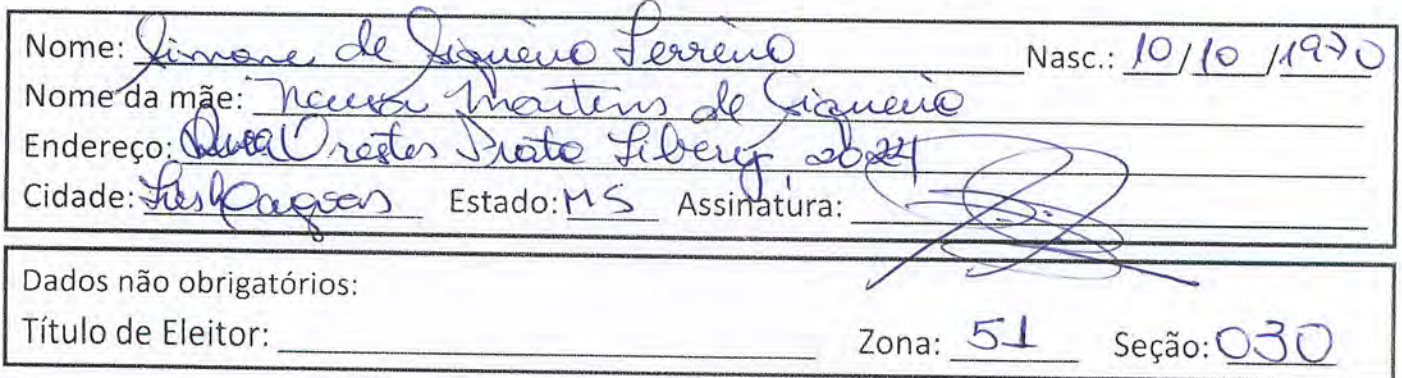 Nome: Simone de Siqueira Ferreira Nasc.: 10/10/1970
Nome da mãe: Neusa Martins de Siqueira
Endereço: Orestes Prata Tibery, 2024
Cidade: Três Lagoas Estado: MS Assinatura:
Dados não obrigatórios:
Título de Eleitor: Zona: 51 Seção: 030